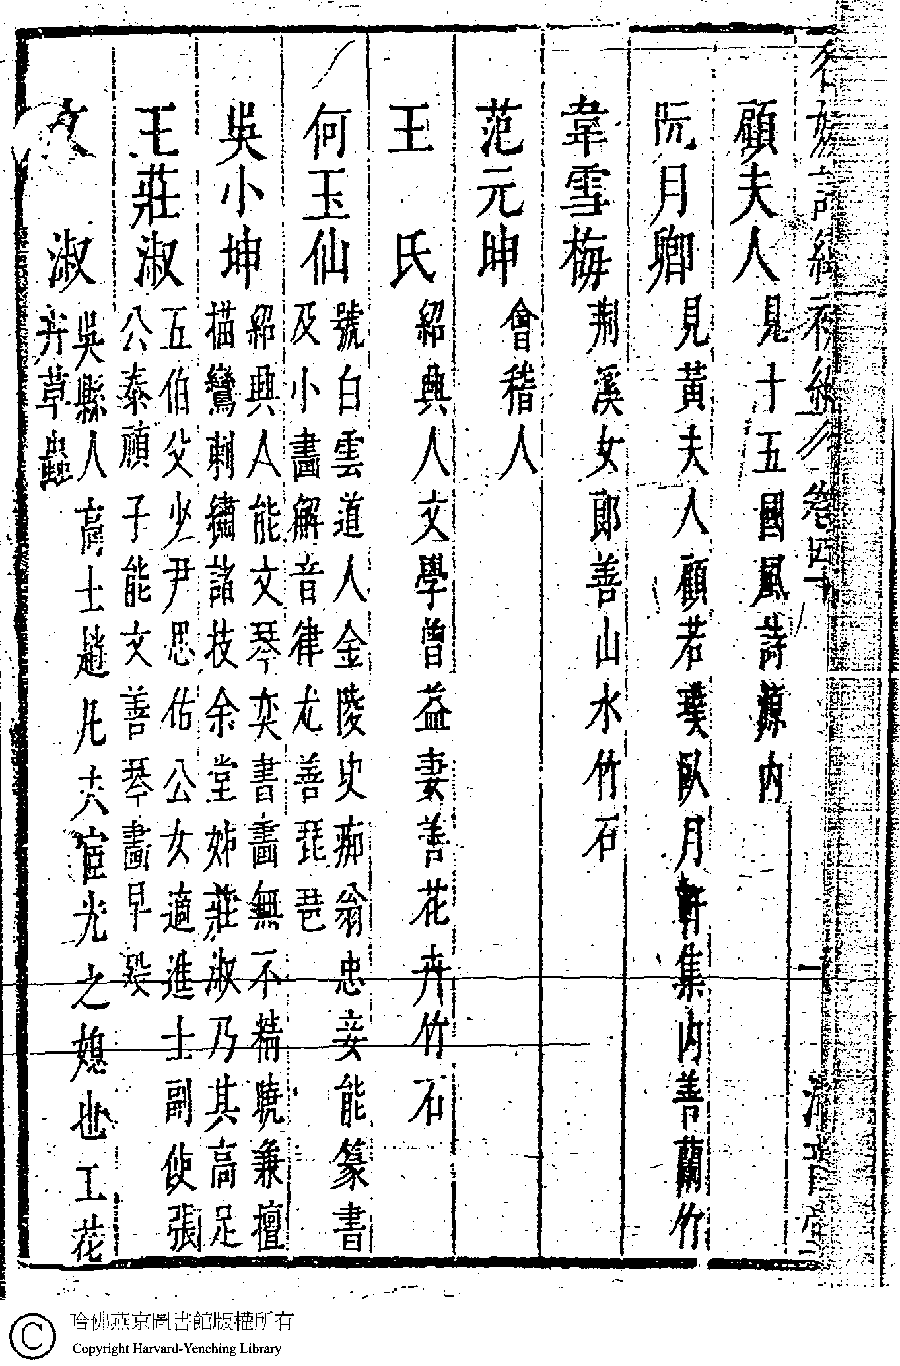 名媛詩緯初編 卷四十
顧夫人 見十五國風詩源內
阮月卿 見黃夫人顧若璞臥月軒集內善蘭竹
韋雪梅 荆溪女郎善山水竹石
范元坤 會稽人
王 氏 紹興人文學曾益妻善花卉竹石
何玉仙 號白雲道人金陵史痴翁忠妾能篆書
及小畫解音律尤善琵琶
吳小坤 紹興人能文琴奕書畫無不精曉兼擅
描鸞刺繡諸技余堂姊莊淑乃其高足
王莊淑 五伯父少尹思佑公女適進士副使張
公泰禎子能文善琴畫早歿
文 淑 吳縣人高士趙凡夫宦光之媳也工花
卉草蟲
哈佛燕京圖書館版權所有
Copyright Harvard-Yenching Library